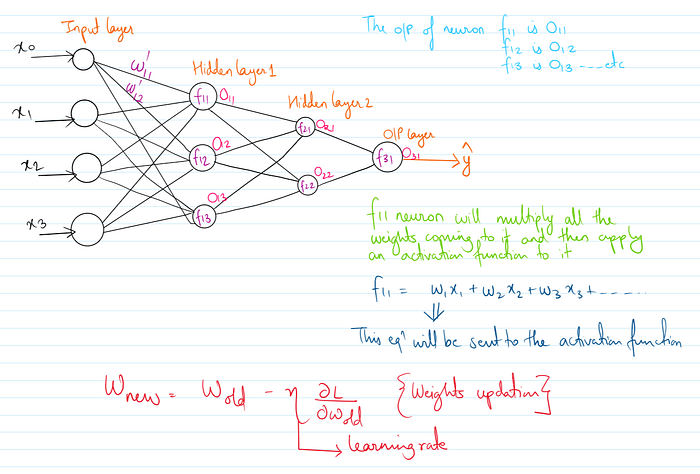 Input layer
x0
x1
x2
x3
w'11
w'12
Hidden layer 1
f11 O11
f12 O12
f13 O13
Hidden layer 2
f21 O21
f22 O22
O/P layer
f31 O31
ŷ
The o/p of neuron f11 is O11
f12 is O12
f13 is O13 ----etc
f11 neuron will multiply all the
weights coming to it and then apply
an activation function to it
f11 = w1x1 + w2x2 + w3x3 + ------
⇓
This eqⁿ will be sent to the activation function
Wnew = Wold - η ∂L/∂wold {Weights updation}
learning rate